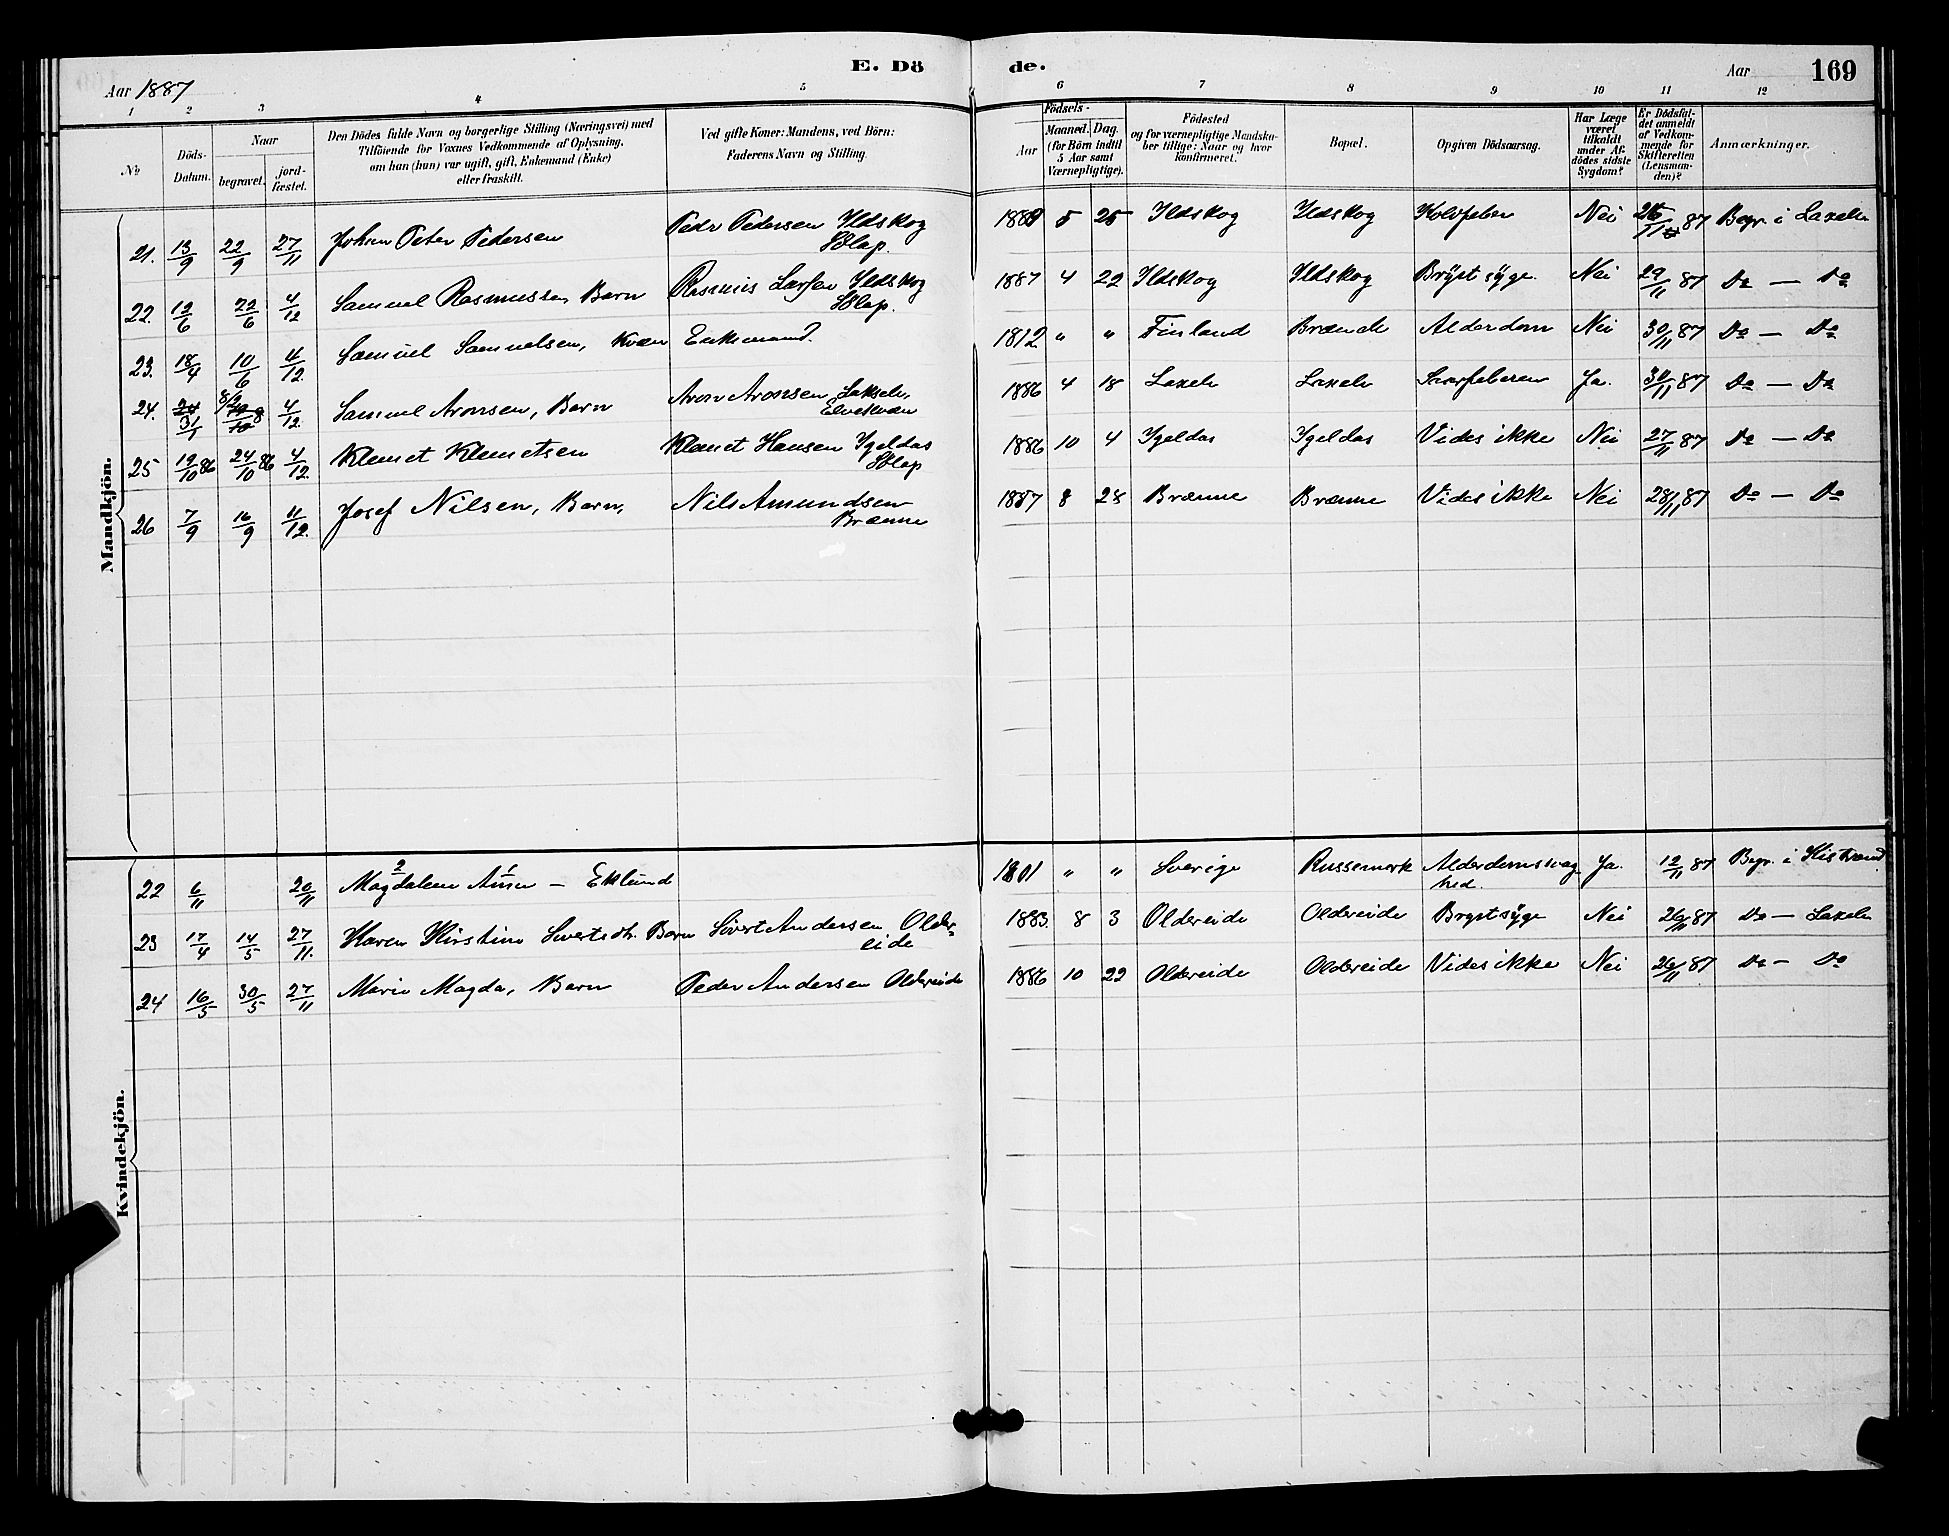 E. Dö de.
Aar 1887
Aar 169
1 2 3 4 5 6 7 8 9 10 11 12
No
Döds-Datum.
Naar
begravet.
jord-fæstet.
Den Dödes fulde Navn og borgerlige Stilling (Næringsvei) med
Tilföiende for Voxnes Vedkommende af Oplysning,
om han (hun) var ugift, gift, Enkemand (Enke)
eller fraskilt.
Ved gifte Koner: Mandens, ved Börn:
Faderens Navn og Stilling.
Födsels-
Aar
Maaned. Dag.
(for Börn indtil
5 Aar samt
Værnepligtige).
Födested
og for værnepligtige Mandska-
ber tillige: Naar og hvor
konfirmeret.
Bopæl.
Opgiven Dödsaarsag.
Har Læge
været
tilkaldt
under Af-
dödes sidste
Sygdom?
Er Dödsfal-
det anmeldt
af Vedkom-
mende for
Skifteretten
(Lensman-
den)?
Anmærkninger.
Mandkjön.
21. 13/9 22/9 27/11 Johan Peter Pedersen Peder Pedersen Ildskog 5 25 Ildskog Ildskog Nei 87 Begr. i Laxelv
22. 12/6 22/6 4/12 Samuel Rasmussen Barn Rasmus Larsen Ildskog 1887 4 22 Ildskog Ildskog Brÿstsÿge. Nei 29/11 87 Do — Do
23. 18/4 10/6 4/12 Samuel Samuelsen, Kvæn Enkemand. 1812 " " Finland Brænde Alderdom Nei 30/11 87 Do — Do
24. 31/1 4/12 Samuel Aronsen, Barn Aron Aronsen Lakselv. 1886 4 18 Laxelv Laxelv Ja. 30/11 87 Do — Do
Elvekvæn
25 19/10 86 24/10 86 4/12. Klemet Klemetsen Klemet Hansen Igeldas 1886 10 4 Igeldas Igeldas Vides ikke Nei 27/11 87 Do — Do
26 7/9 16/9 11/12. Josef Nilsen, Barn. Nils Amundsen 1887 8 28 Brænne Brænne Vides ikke Nei 28/11 87 Do — Do
Brænne
Kvindekjön.
22 6/11 20/11 Magdalena Anna — Eklund 1801 " " Sverige Russemark Alderdomssvag Ja. 12/11 87 Begr. i Kistrand
hed.
23 17/4 14/5 27/11. Karen Kirstine Sivertsdtr. Barn Sivert Andersen Older- 1883. 8 3 Oldereide Oldereide Brystsÿge Nei 26/11 87 Do — Laxelv
eide
24 16/5 30/5 27/11 Marie Magda, Barn Peder Andersen Oldereide 1886 10 22 Oldereide Oldereide Vides ikke Nei 26/11 87 Do — Do